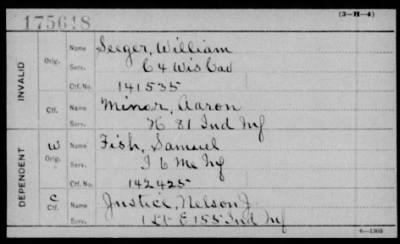 175618
(3—H—4)
INVALID
Orig. Name Seeger, William
Serv. C 4 Wis Cav
Ctf. No. 141535
Ctf. Name Minor, Aaron
Serv. H 81 Ind Inf
DEPENDENT
W Orig. Name Fish, Samuel
Serv. I 6 Me Inf
Ctf. No. 142425
C Ctf. Name Justice, Nelson J.
Serv. 1 Lt E 155 Ind Inf
6—1303